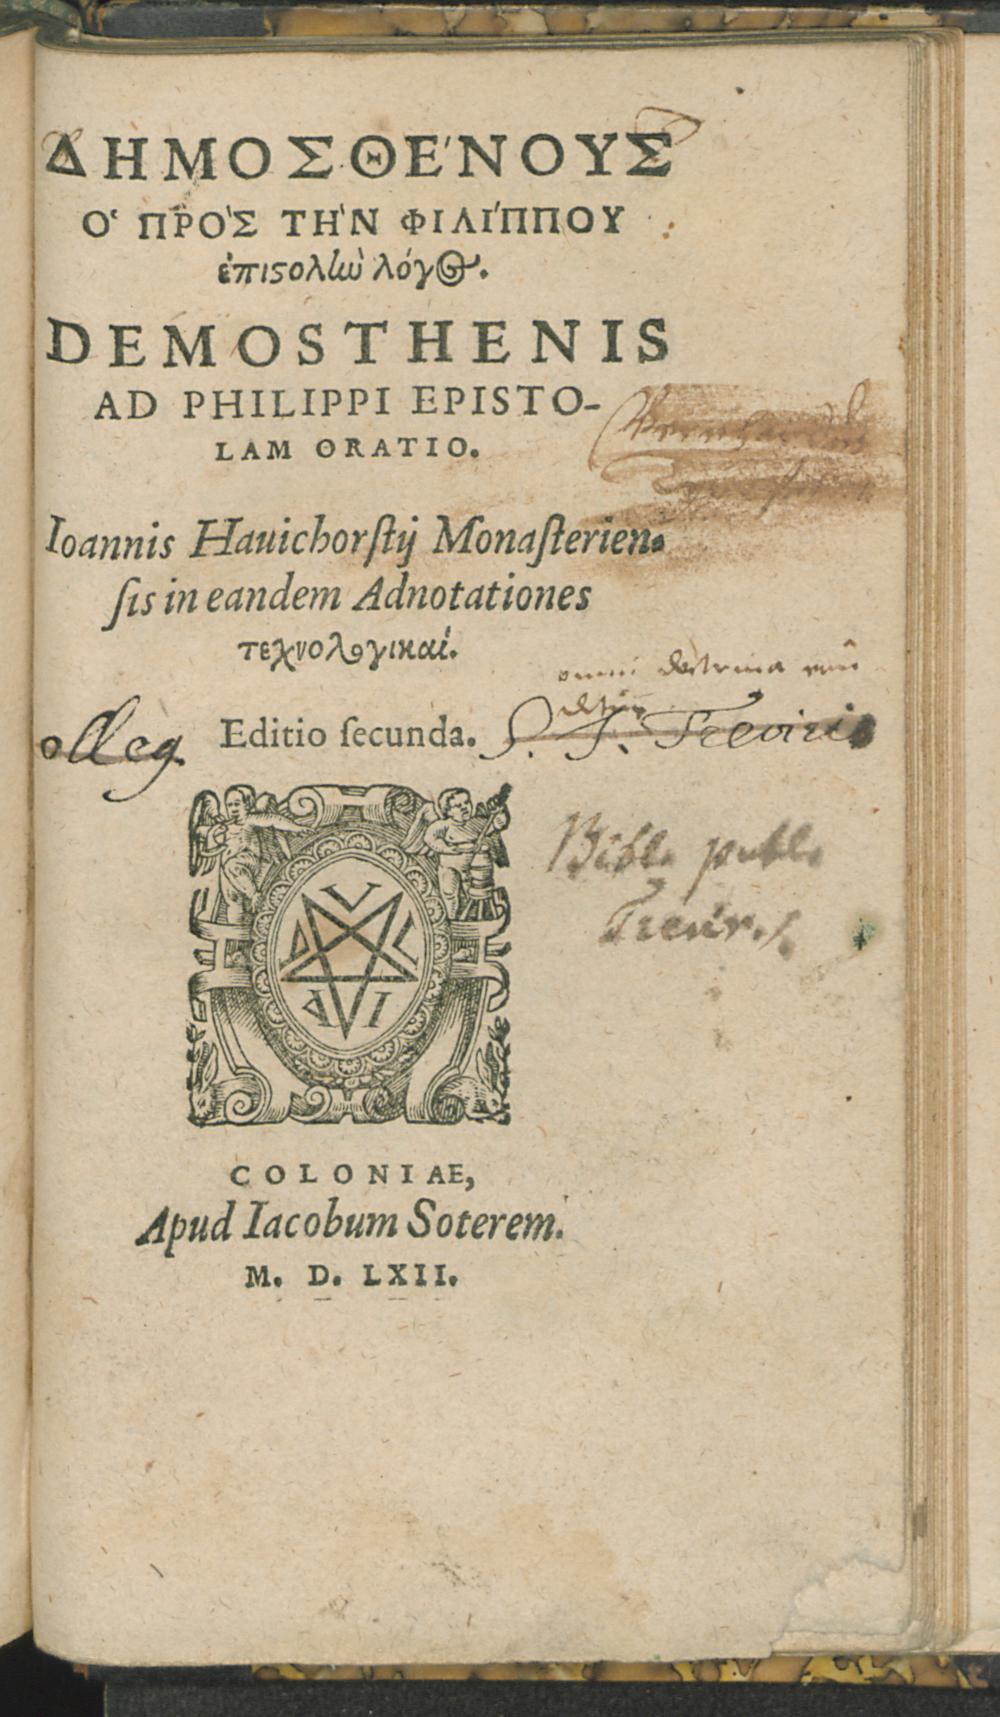 ΔΗΜΟΣΘΈΝΟΥΣ
Ὁ ΠΡῸΣ ΤῊΝ ΦΙΛΊΠΠΟΥ
ἐπιϛολὴν λόγος.
DEMOSTHENIS
AD PHILIPPI EPISTO-
LAM ORATIO.
Ioannis Hauichorſtij Monaſterien-
ſis in eandem Adnotationes
τεχνολογικαί.
omni doctrina
olleg. Editio ſecunda. S. J. Treviris
Bibl. publ.
Trevir.
COLONIAE,
Apud Iacobum Soterem.
M. D. LXII.